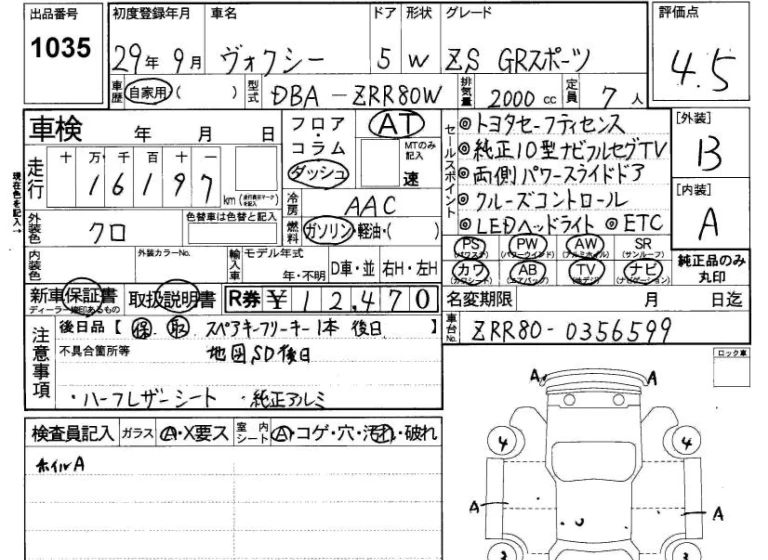 出品番号 初度登録年月 車名 ドア 形状 グレード 評価点
1035 29年 9月 ヴォクシー 5 W ZS GRスポーツ 4.5
車歴 自家用( ) 型式 DBA-ZRR80W 排気量 2000 cc 定員 7 人
車検 年 月 日 フロア・コラム・ダッシュ AT MTのみ記入 速
走行 十 万 千 百 十 一
1 6 1 9 7 km
現在色を記入→
冷房 AAC
外装色 クロ 色替車は色替と記入 燃料 ガソリン・軽油・( )
内装色 外装カラーNo. 輸入車 モデル年式 年・不明 D車・並 右H・左H
セールスポイント
◎トヨタセーフティセンス
◎純正10型ナビフルセグTV
◎両側パワースライドドア
◎クルーズコントロール
◎LEDヘッドライト ◎ETC
[外装]
B
[内装]
A
PS PW AW SR
(パワステ) (パワーウィンドウ) (アルミホイル) (サンルーフ)
カワ AB TV ナビ
(カワシート) (エアバッグ) (地デジ) (ナビゲーション)
純正品のみ丸印
新車保証書 取扱説明書 R券 ¥ 12,470 名変期限 月 日迄
ディーラー捺印あるもの
注意事項 後日品【 保 取 スペアキーフリーキー1本 後日 】
車台No. ZRR80-0356599
不具合箇所等 地図SD後日
・ハーフレザーシート ・純正アルミ
ロック車
検査員記入 ガラス A・X要ス 室内シート A・コゲ・穴・汚れ・破れ
ホイルA
A A
4 4
A A
3 3